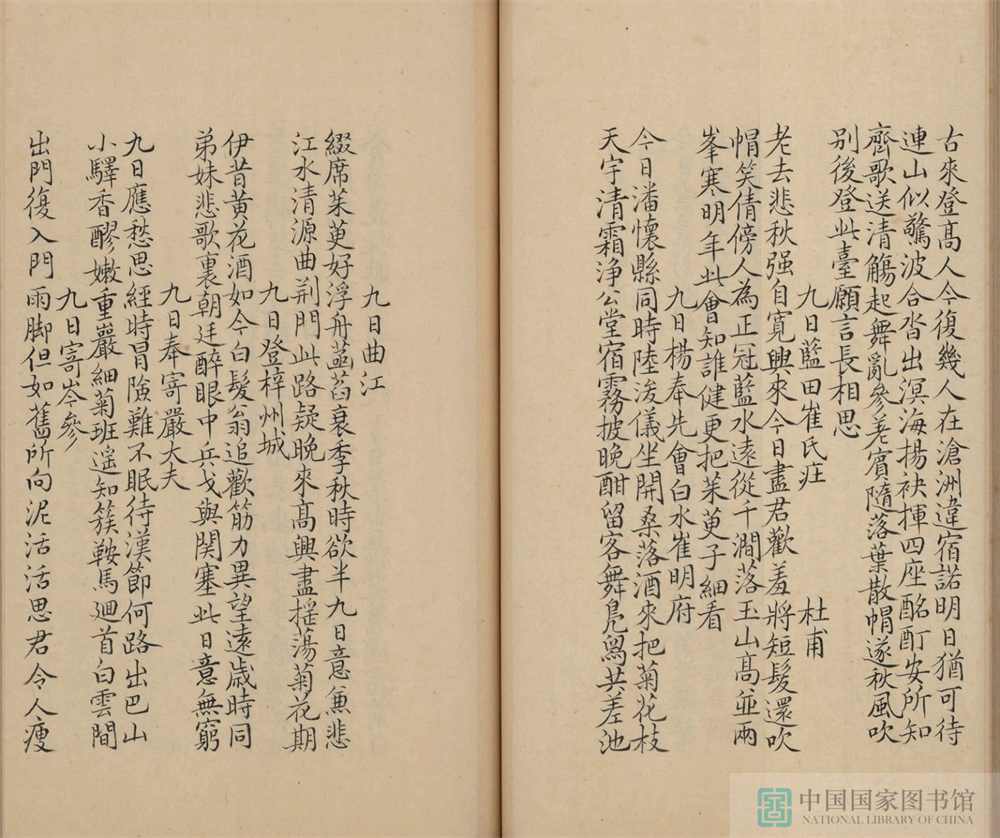 古來登髙人今復幾人在滄洲違宿諾明日猶可待
連山似驚波合沓出溟海揚袂揮四座酩酊安所知
齊歌送清觴起舞亂參差賓隨落葉散帽逐秋風吹
別後登此臺願言長相思
九日藍田崔氏庄
杜甫
老去悲秋强自寬興來今日盡君歡羞將短髮還吹
帽笑倩傍人為正冠藍水遠從千澗落玉山髙並兩
峯寒明年此會知誰健更把茱萸子細看
九日楊奉先會白水崔明府
今日潘懷縣同時陸浚儀坐開桑落酒來把菊花枝
天宇清霜淨公堂宿霧披晚酣留客舞鳧舄共差池
九日曲江
綴席茱萸好浮舟菡萏衰季秋時欲半九日意兼悲
江水清源曲荆門此路疑晚來髙興盡摇蕩菊花期
九日登梓州城
伊昔黄花酒如今白髮翁追歡筋力異望遠歲時同
弟妹悲歌裏朝廷醉眼中兵戈與関塞此日意無窮
九日奉寄嚴大夫
九日應愁思經時冒險難不眠待漢節何路出巴山
小驛香醪嫩重巖細菊班遥知簇鞍馬廻首白雲間
九日寄岑參
出門復入門雨脚但如舊所向泥活活思君令人瘦
中国国家图书馆
NATIONAL LIBRARY OF CHINA